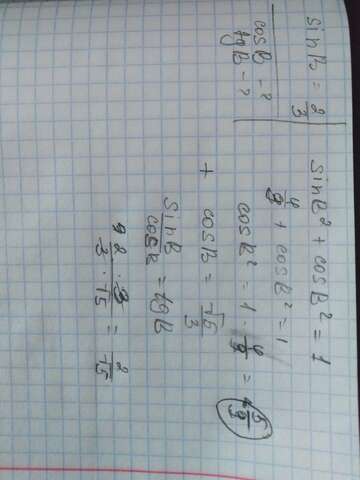 sinB = 2/3
cosB - ?
tgB - ?
sinB² + cosB² = 1
4/9 + cosB² = 1
cosB² = 1 · 4/9 = 5/9
+ cosB = √5/3
sinB/cosB = tgB
2/3 · 3/√5 = 2/√5